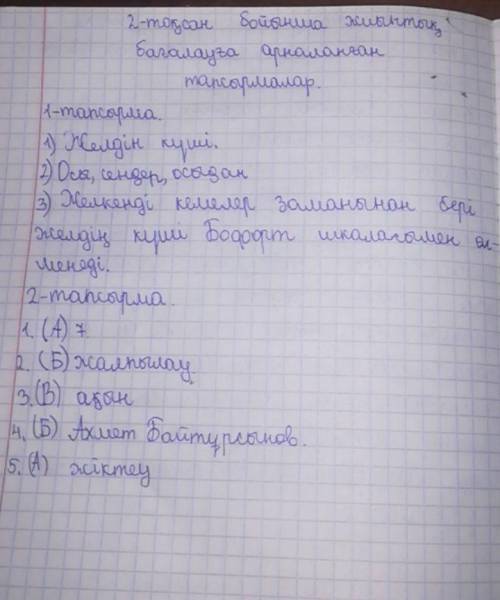 2-тоқсан бойынша жиынтық
бағалауға арналанған
тапсырмалар.
1-тапсырма.
1) Желдін күші.
2) Осы, сендер, осыдан
3) Желкенді кемелер заманынан бері
желдің күші Бофорт шкаласымен өл-
менеді.
2-тапсырма.
1. (А) 7
2. (Б) жалпылау
3. (В) ақын
4. (Б) Ахмет Байтұрсынов.
5. (А) жіктеу